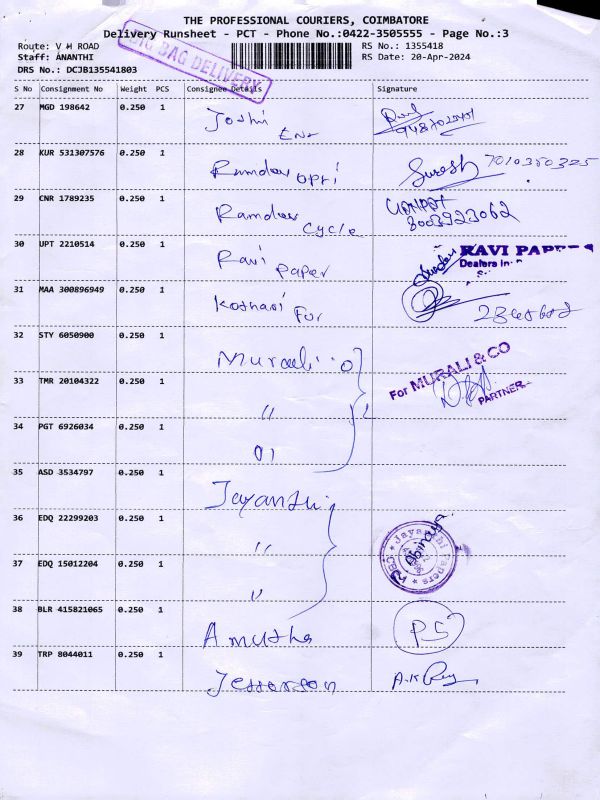 THE PROFESSIONAL COURIERS, COIMBATORE
Delivery Runsheet - PCT - Phone No.:0422-3505555 - Page No.:3
Route: V H ROAD RS No.: 1355418
Staff: ANANTHI RS Date: 20-Apr-2024
DRS No.: DCJB135541803
BIG BAG DELIVERY
S No Consignment No Weight PCS Consignee Details Signature
27 MGD 198642 0.250 1 Joshi
Ent
28 KUR 531307576 0.250 1 Ramdev opti Suresh 7010350325
29 CNR 1789235 0.250 1 Ramdev Cycle
8003923062
30 UPT 2210514 0.250 1 Ravi Paper RAVI PAPERS
Dealers in
31 MAA 300896949 0.250 1 Kothari Fur
32 STY 6050900 0.250 1 Murali
For MURALI & CO
PARTNER
33 TMR 20104322 0.250 1 "
34 PGT 6926034 0.250 1 "
35 ASD 3534797 0.250 1 Jayanthi
36 EDQ 22299203 0.250 1 "
Jayanthi Papers
CBE
Abinaya
37 EDQ 15012204 0.250 1 "
38 BLR 415821065 0.250 1 Amutha PS
39 TRP 8044011 0.250 1 Jefferson